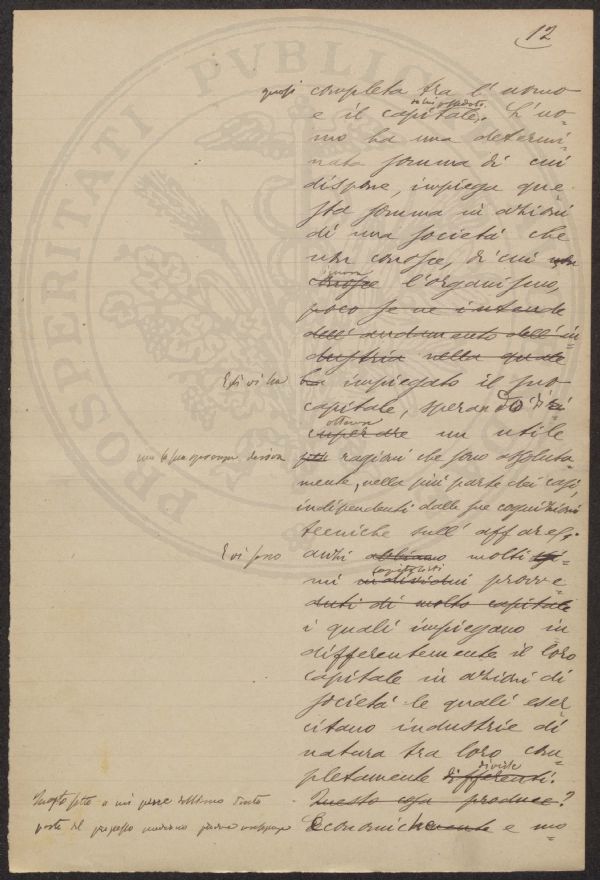 12
quasi completa tra l'uomo
da lui posseduto
e il capitale. L'uo=
mo ha una determi=
nata somma di cui
dispone, impiega que=
sta somma in azioni
di una società che
non conosce, di cui non
ignora
conosce l'organismo,
poco se ne intende
dell'andamento dell'in=
dustria nella quale
Egli vi ha
ha impiegato il suo
capitale, sperando di
ottenere
superare un utile
per ragioni che sono assoluta=
mente, nella più parte dei casi,
indipendenti dalle sue cognizioni
tecniche sull'affare.
E vi sono
anzi abbiamo molti
capitalisti
individui provve=
duti di molto capitale
i quali impiegano in=
differentemente il loro
capitale in azioni di
società le quali eser=
citano industrie di
natura tra loro com=
diverse
pletamente differenti.
Questo cosa produce?
Economicamente e mo=
PROSPERITATI PVBLICAE